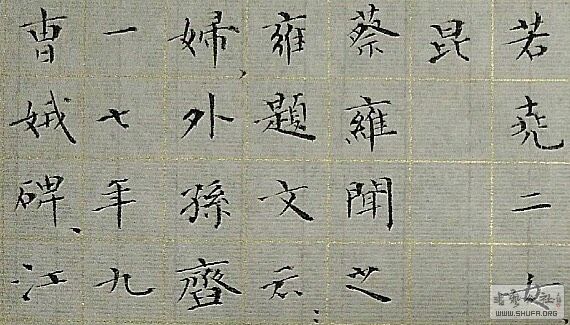 若堯二女、
昆
蔡雍聞之
雍題文云：
婦、外孫齏
一七年九
曹娥碑、江
WWW.SHUFA.ORG